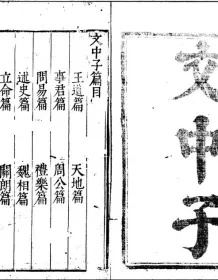 文中子
文中子篇目
王道篇 天地篇
事君篇 周公篇
問易篇 禮樂篇
述史篇 魏相篇
立命篇 關朗篇